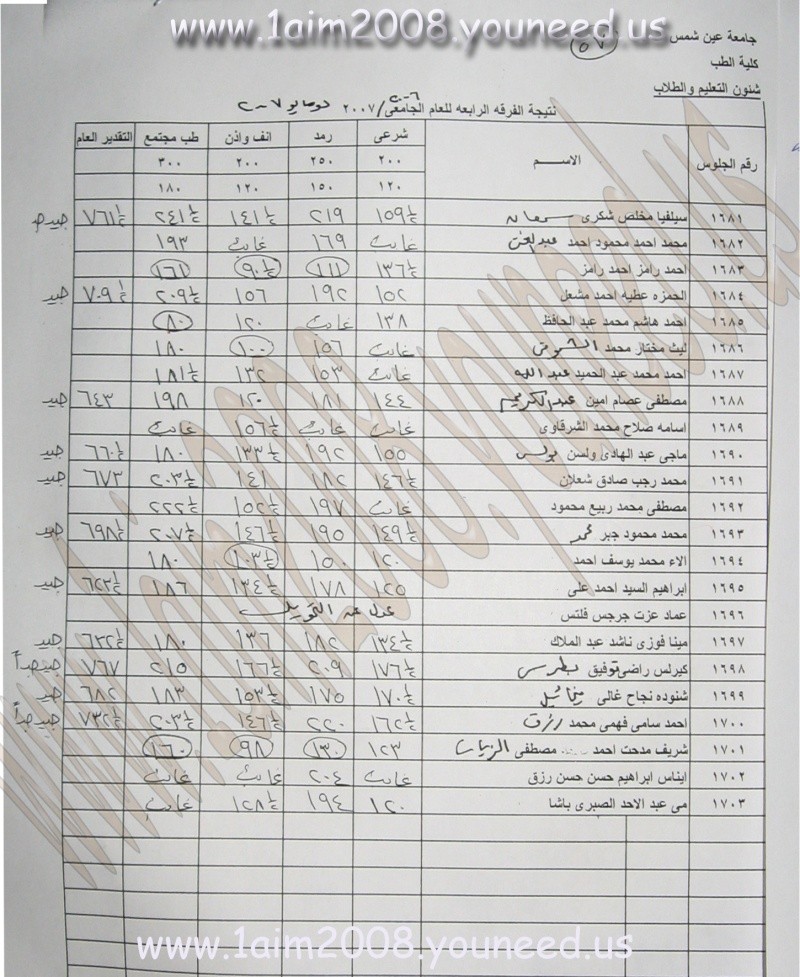 www.1aim2008.youneed.us
جامعة عين شمس
٥٧
كلية الطب
شئون التعليم والطلاب
نتيجة الفرقه الرابعه للعام الجامعى ٢٠٠٦/٢٠٠٧ دور مايو ٢٠٠٧
رقم الجلوس الاســم شرعى رمد انف واذن طب مجتمع التقدير العام
٢٠٠ ٢٥٠ ٢٠٠ ٣٠٠
١٢٠ ١٥٠ ١٢٠ ١٨٠
١٦٨١ سيلفيا مخلص شكرى سمعان ١٥٩½ ٢١٩ ١٤١½ ٢٤١½ ٧٦١½ جيد جدا
١٦٨٢ محمد احمد محمود احمد عبد الغنى غائب ١٦٩ غائب ١٩٣
١٦٨٣ احمد رامز احمد رامز ١٣٦½ ١١١ ٩٠½ ١٦١
١٦٨٤ الحمزه عطيه احمد مشعل ١٥٢ ١٩٢ ١٥٦ ٢٠٩½ ٧٠٩½ جيد
١٦٨٥ احمد هاشم محمد عبد الحافظ ١٣٨ غائب ١٢٠ ٨٠
١٦٨٦ ليث مختار محمد غائب ١٥٦ ١٠٠ ١٨٠
١٦٨٧ احمد محمد عبد الحميد عبد الله غائب ١٥٣ ١٣٢ ١٨١½
١٦٨٨ مصطفى عصام امين عبد الكريم ١٤٤ ١٨١ ١٢٠ ١٩٨ ٦٤٣ جيد
١٦٨٩ اسامه صلاح محمد الشرقاوى غائب غائب ١٥٦½ غائب
١٦٩٠ ماجى عبد الهادى ولسن بولس ١٥٥ ١٩٢ ١٣٣½ ١٨٠ ٦٦٠½ جيد
١٦٩١ محمد رجب صادق شعلان ١٤٦½ ١٨٢ ١٤١ ٢٠٣½ ٦٧٣ جيد
١٦٩٢ مصطفى محمد ربيع محمود غائب ١٩٧ ١٥٢½ ٢٢٢½
١٦٩٣ محمد محمود جبر محمد ١٤٩½ ١٩٥ ١٤٦½ ٢٠٧½ ٦٩٨½ جيد
١٦٩٤ الاء محمد يوسف احمد ١٢٠ ١٥٠ ١٠٣½ ١٨٠
١٦٩٥ ابراهيم السيد احمد على ١٢٥ ١٧٨ ١٣٤½ ١٨٦ ٦٢٣½ جيد
١٦٩٦ عماد عزت جرجس فلتس عدل عن التحويل
١٦٩٧ مينا فوزى ناشد عبد الملاك ١٣٤½ ١٨٢ ١٣٦ ١٨٠ ٦٣٢½ جيد
١٦٩٨ كيرلس راضى توفيق بطرس ١٧٦½ ٢٠٩ ١٦٦½ ٢١٥ ٧٦٧ جيد جداً
١٦٩٩ شنوده نجاح غالى ميخائيل ١٧٠½ ١٧٥ ١٥٣½ ١٨٣ ٦٨٢ جيد
١٧٠٠ احمد سامى فهمى محمد رزق ١٦٢½ ٢٢٠ ١٤٦½ ٢٠٣½ ٧٣٢½ جيد جداً
١٧٠١ شريف مدحت احمد مصطفى الزيات ١٢٣ ١٣٠ ٩٨ ١٦٠
١٧٠٢ ايناس ابراهيم حسن حسن رزق غائب ٢٠٤ غائب غائب
١٧٠٣ مى عبد الاحد الصبرى باشا ١٢٠ ١٩٤ ١٢٨½ غائب
www.1aim2008.youneed.us